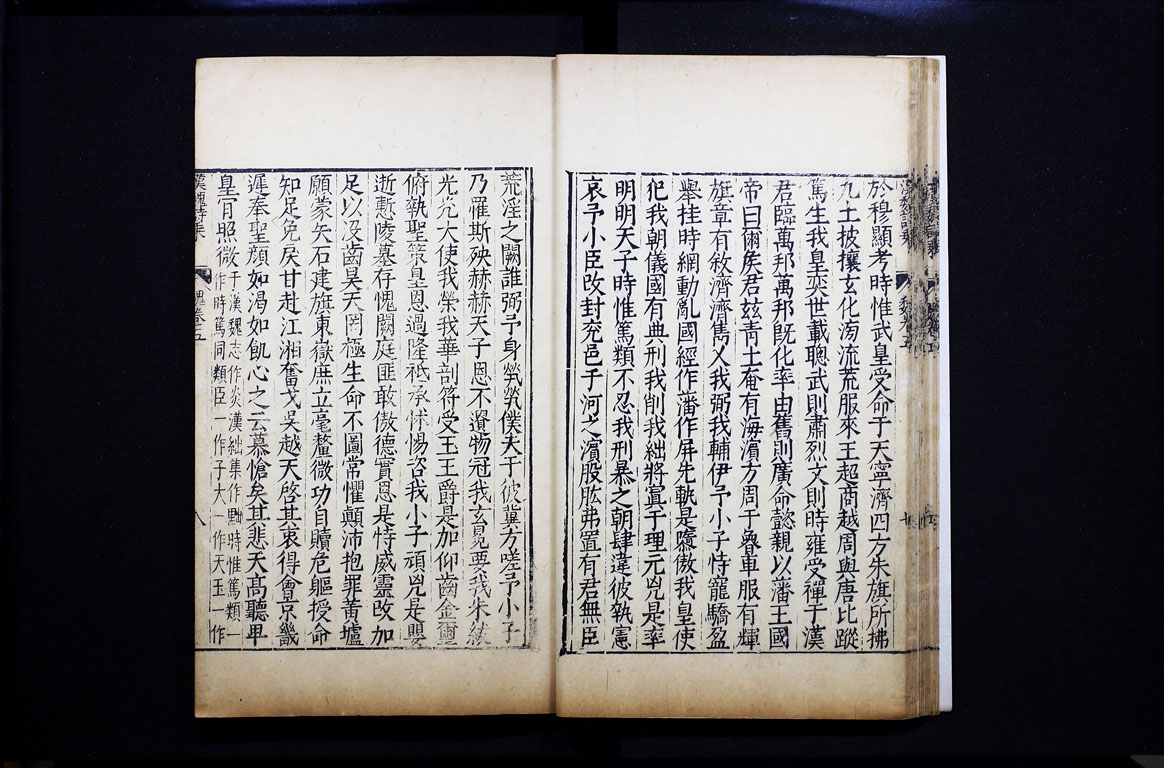 於穆顯考時惟武皇受命于天寧濟四方朱旗所拂
九土披攘玄化滂流荒服來王超商越周與唐比蹤
篤生我皇奕世載聰武則肅烈文則時雍受禪于漢
君臨萬邦萬邦旣化率由舊則廣命懿親以藩王國
帝曰爾矦君玆青土奄有海濱方周于魯車服有輝
旗章有敘濟濟雋乂我弼我輔伊予小子恃寵驕盈
舉挂時網動亂國經作藩作屏先軌是隳傲我皇使
犯我朝儀國有典刑我削我絀將寘于理元兇是率
明明天子時惟篤類不忍我刑暴之朝肆違彼執憲
哀予小臣改封兖邑于河之濱股肱弗置有君無臣
荒淫之闕誰弼予身煢煢僕夫于彼冀方嗟予小子
乃罹斯殃赫赫天子恩不遺物冠我玄冕要我朱紱
光光大使我榮我華剖符受玉王爵是加仰齒金璽
俯執聖策皇恩過隆祗承怵惕咨我小子頑兇是嬰
逝慙陵墓存愧闕庭匪敢傲德實恩是恃威靈改加
足以沒齒昊天罔極生命不圖常懼顛沛抱罪黃壚
願蒙矢石建旗東嶽庶立毫釐微功自贖危軀授命
知足免戾甘赴江湘奮戈吳越天啓其衷得會京畿
遲奉聖顏如渴如飢心之云慕愴矣其悲天高聽卑
皇肯照微于漢魏志作炎漢絀集作黜時惟篤類一
作時篤同類臣一作子大一作天玉一作
漢魏詩集
魏卷五
八